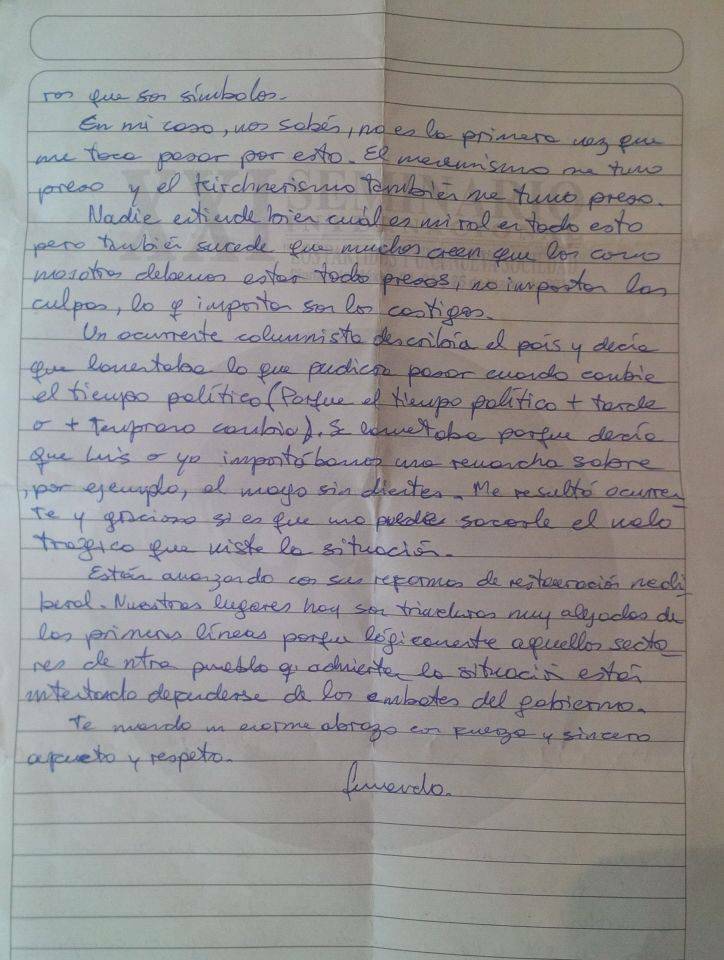 ros que son símbolos.-
En mi caso, vos sabés, no es la primera vez que
me toca pasar por esto. El menemismo me tuvo
preso y el kirchnerismo también me tuvo preso.
Nadie entiende bien cuál es mi rol en todo esto
pero también sucede que muchos creen que los como
nosotros debemos estar todo presos, no importan las
culpas, lo q importan son los castigos.
Un ocurrente columnista describía el país y decía
que lamentaba lo que pudiera pasar cuando cambie
el tiempo político (Porque el tiempo político + tarde
o + temprano cambia). Se lamentaba porque decía
que Luis o yo importábamos una revancha sobre
, por ejemplo, el mago sin dientes. Me resultó ocurren-
te y gracioso si es que uno puede sacarle el velo
trágico que viste la situación.
Están avanzando con sus reformas de restauración neoli
beral. Nuestros lugares hoy son trincheras muy alejadas de
las primeras líneas porque lógicamente aquellos secto-
res de ntro pueblo q advierten la situación están
intentando defenderse de los embates del gobierno.
Te mando un enorme abrazo con fuerza y sincero
afecto y respeto.
Fernando.
XXI SEMINARIO